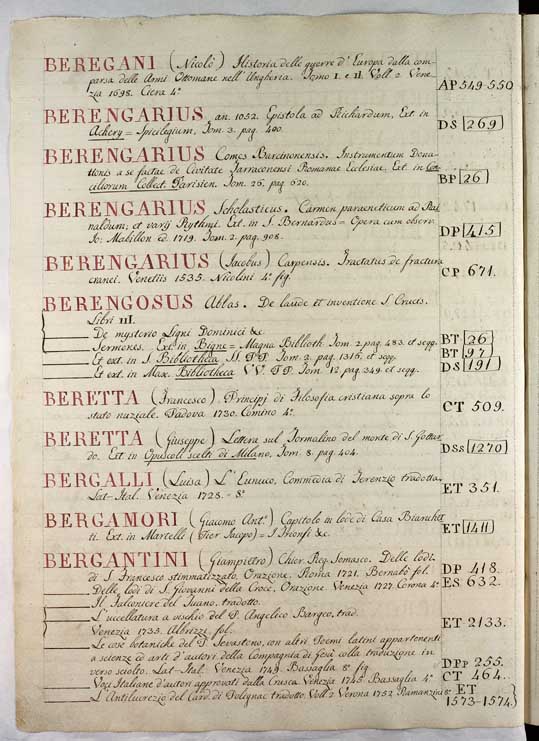 BEREGANI (Nicolò) Historia delle guerre d'Europa dalla com-
parsa delle Armi Ottomane nell'Ungheria. Tomo I. e II. Voll. 2 Vene-
zia 1698. Ciera 4.° AP 549-550
BERENGARIUS an. 1052. Epistola ad Richardum, Ext in
Achery = Spicilegium, Tom. 3. pag. 400. DS 269
BERENGARIUS Comes Barcinonensis. Instrumentum Dona-
tionis a se factae de Civitate Tarraconensi Romanae Ecclesiae. Ext. in Con-
ciliorum Collect. Parisien. Tom. 26. pag. 620. BP 26
BERENGARIUS Scholasticus. Carmen paraeneticum ad Rai-
naldum, et varij Rythmi. Ext. in S. Bernardus = Opera cum observ.
Jo: Mabillon ed. 1719. Tom. 2. pag. 908. DP 415
BERENGARIUS (Jacobus) Carpensis. Tractatus de fractura
cranei. Venetiis 1535. Nicolini 4.° fig. CP 671.
BERENGOSUS Abbas. De laude et inventione S. Crucis.
Libri III.
De mysterio Ligni Dominici &c
Sermones. Ext. in Bigne = Magna Biblioth. Tom. 2. pag. 483. et seqq. BT 26
Et ext. in S. Bibliotheca SS. PP. Tom. 2. pag. 1316. et seqq. BT 97
Et ext. in Max. Bibliotheca VV. PP. Tom. 12. pag. 349 et seqq. DS 191
BERETTA (Francesco) Principj di Filosofia cristiana sopra lo
stato nuziale. Padova 1730. Comino 4.° CT 509.
BERETTA (Giuseppe) Lettera sul Tormalino del monte di S. Gottar-
do. Ext in Opuscoli scelti di Milano, Tom. 8. pag. 404. DSs 1270
BERGALLI (Luisa) L'Eunuco, Commedia di Terenzio tradotta.
Lat-Ital. Venezia 1728. = 8.° ET 351.
BERGAMORI (Giacomo Ant.°) Capitolo in lode di Casa Bianchet-
ti. Ext. in Martelli (Pier Jacopo) = I Trionfi &c. ET 1411
BERGANTINI (Giampietro) Chier. Reg. Somasco. Delle lodi
di S. Francesco stimmatizzato, Orazione. Roma 1721. Bernabò fol. DP 418.
Delle lodi di S. Giovanni della Croce, Orazione. Venezia 1727. Corona 4.° ES 632.
Il Falconiere del Tuano, tradotto.
L'uccellatura a vischio del P. Angelico Bargeo, trad.
Venezia 1735. Albrizzi. fol. ET 2133.
Le cose botaniche del P. Sevastano, con altri Poemi latini appartenenti
a scienze ed arti d'autori della Compagnia di Gesù colla traduzione in
verso sciolto. Lat-Ital. Venezia 1749. Bassaglia 8.° fig. DPp 255.
Voci Italiane d'autori approvati dalla Crusca. Venezia 1745. Bassaglia 4.° CT 464.
L'Antilucrezio del Card. di Polignac tradotto. Voll. 2 Verona 1752. Ramanzini 8.° ET
1573-1574.